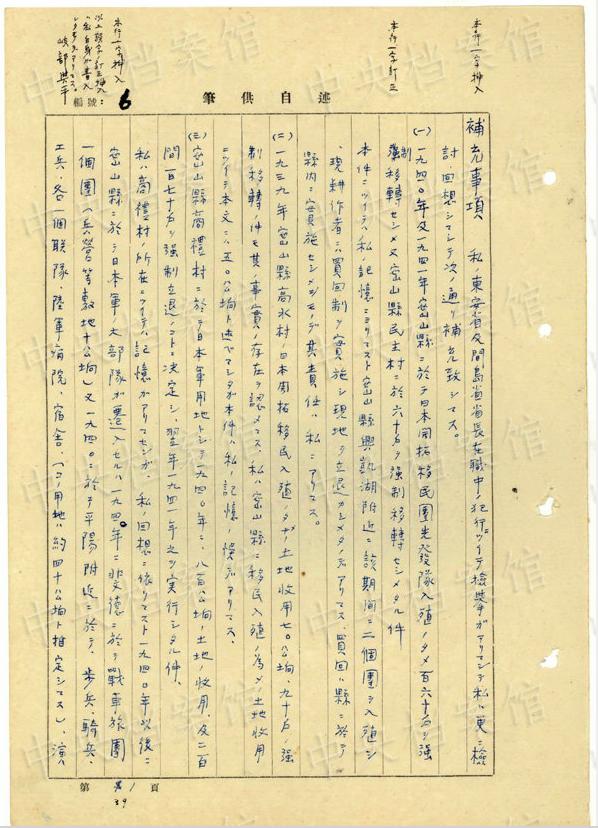 本行一字挿入
本行一字訂正
本行一字挿入
岐部與平
編號 6
述自供筆
補充事項 私ノ東安省及間島省省長在職中ノ犯行ニツイテ検挙ガアリマシテ私ハ更ニ検
討、回想シマシテ次ノ通リ補充致シマス。
(一) 一九四〇年及一九四一年密山縣ニ於テ日本開拓移民團先發隊入殖ノタメ百六十戸ヲ强
制移轉セシメ又密山縣民主村ニ於テ六十戸ヲ强制移轉セシメタル件
本件ニツイテハ私ノ記憶ニヨリマスト密山縣興凱湖附近ニ該期間ニ二個團ヲ入殖シ
、現耕作者ニハ買回制ヲ實施シ現地ヲ立退カシメタノデアリマス、買回ハ縣ニ於テ
縣内ニ實施セシメシモノデ其責任ハ私ニアリマス。
(二) 一九三九年密山縣高水村ノ日本開拓移民入殖ノタメ土地收用七〇公垧、九十戸ノ强
制移轉ノ件モ其ノ事實ノ存在ヲ認メマス、私ハ密山縣ニ移民入殖ノ為メノ土地收用
ニツイテ本文ニハ五〇公垧ト述ベマシタガ本件ハ私ノ記憶ノ誤デアリマス、
(三) 密山縣高禮村ニ於テ日本軍用地トシテ一九四〇年ニ、八百公垧ノ土地ノ收用、及二百
間一百七十戸ヲ强制立退ノコトニ決定シ、翌年一九四一年之ヲ實行シタル件、
私ハ高禮村ノ所在ニツイテハ記憶ガアリマセンガ、私ノ回想ニ依リマスト一九四〇年以後ニ
密山縣ニ於テ日本軍ノ大部隊ガ遷入セルハ一九四〇年ニ斐德ニ於テ戰車旅團
一個團(兵營等敷地十公垧)又一九四〇ニ於テ平陽附近ニ於テ、步兵、騎兵、
工兵、各一個联隊、陸軍病院、宿舎、(コノ用地ハ約四十公垧ト推定シマス)、演
第 1 頁
39
中央档案馆